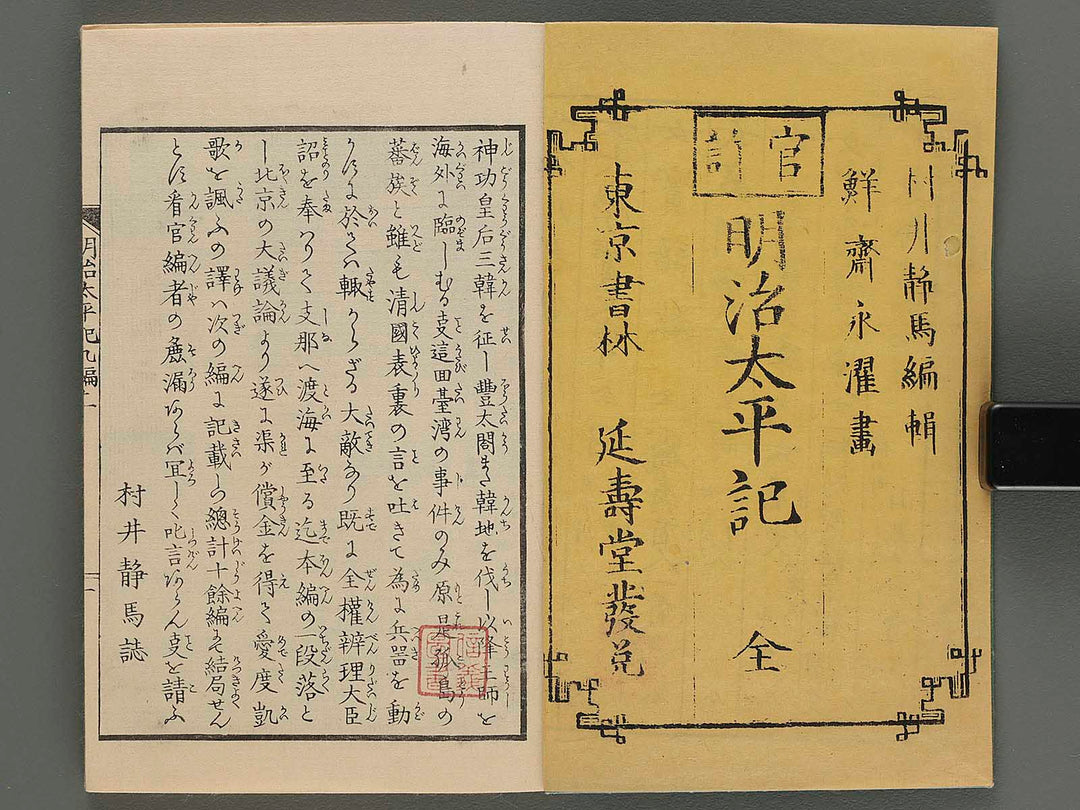 官許
村井靜馬編輯
鮮齋永濯畫
明治太平記 全
東京書林 延壽堂發兌
神功皇后三韓を征し豐太閤また韓地を伐し以降王師を
海外に臨しむる叓這回臺湾の事件のみ原是孤島の
蕃族と雖も清國表裏の言を吐きて為に兵器を動
かすに於ては輙からざる大敵なり既に全權辨理大臣
詔を奉はりて支那へ渡海に至る迄本編の一段落と
し北京の大議論より遂に渠が償金を得て愛度凱
歌を諷ふの譯ハ次の編に記載し總計十餘編にて結局せん
とす看官編者の麁漏あらば冝しく叱言あらん叓を請ふ
村井静馬誌
明治太平記九編